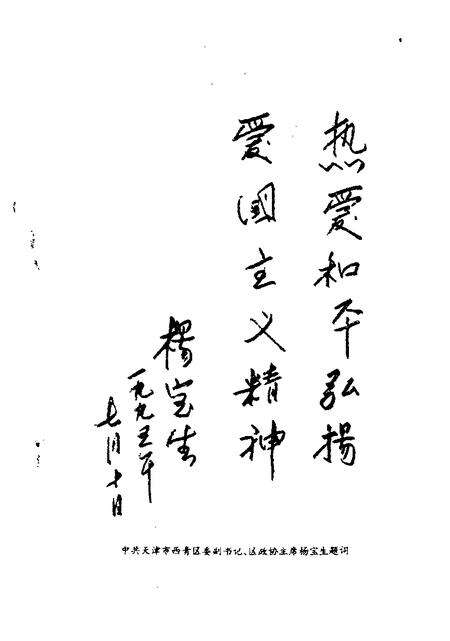 热爱和平弘揚
爱国主义精神
楊宝生
一九九五年
七月十日
中共天津市西青区委副书记、区政协主席杨宝生题词